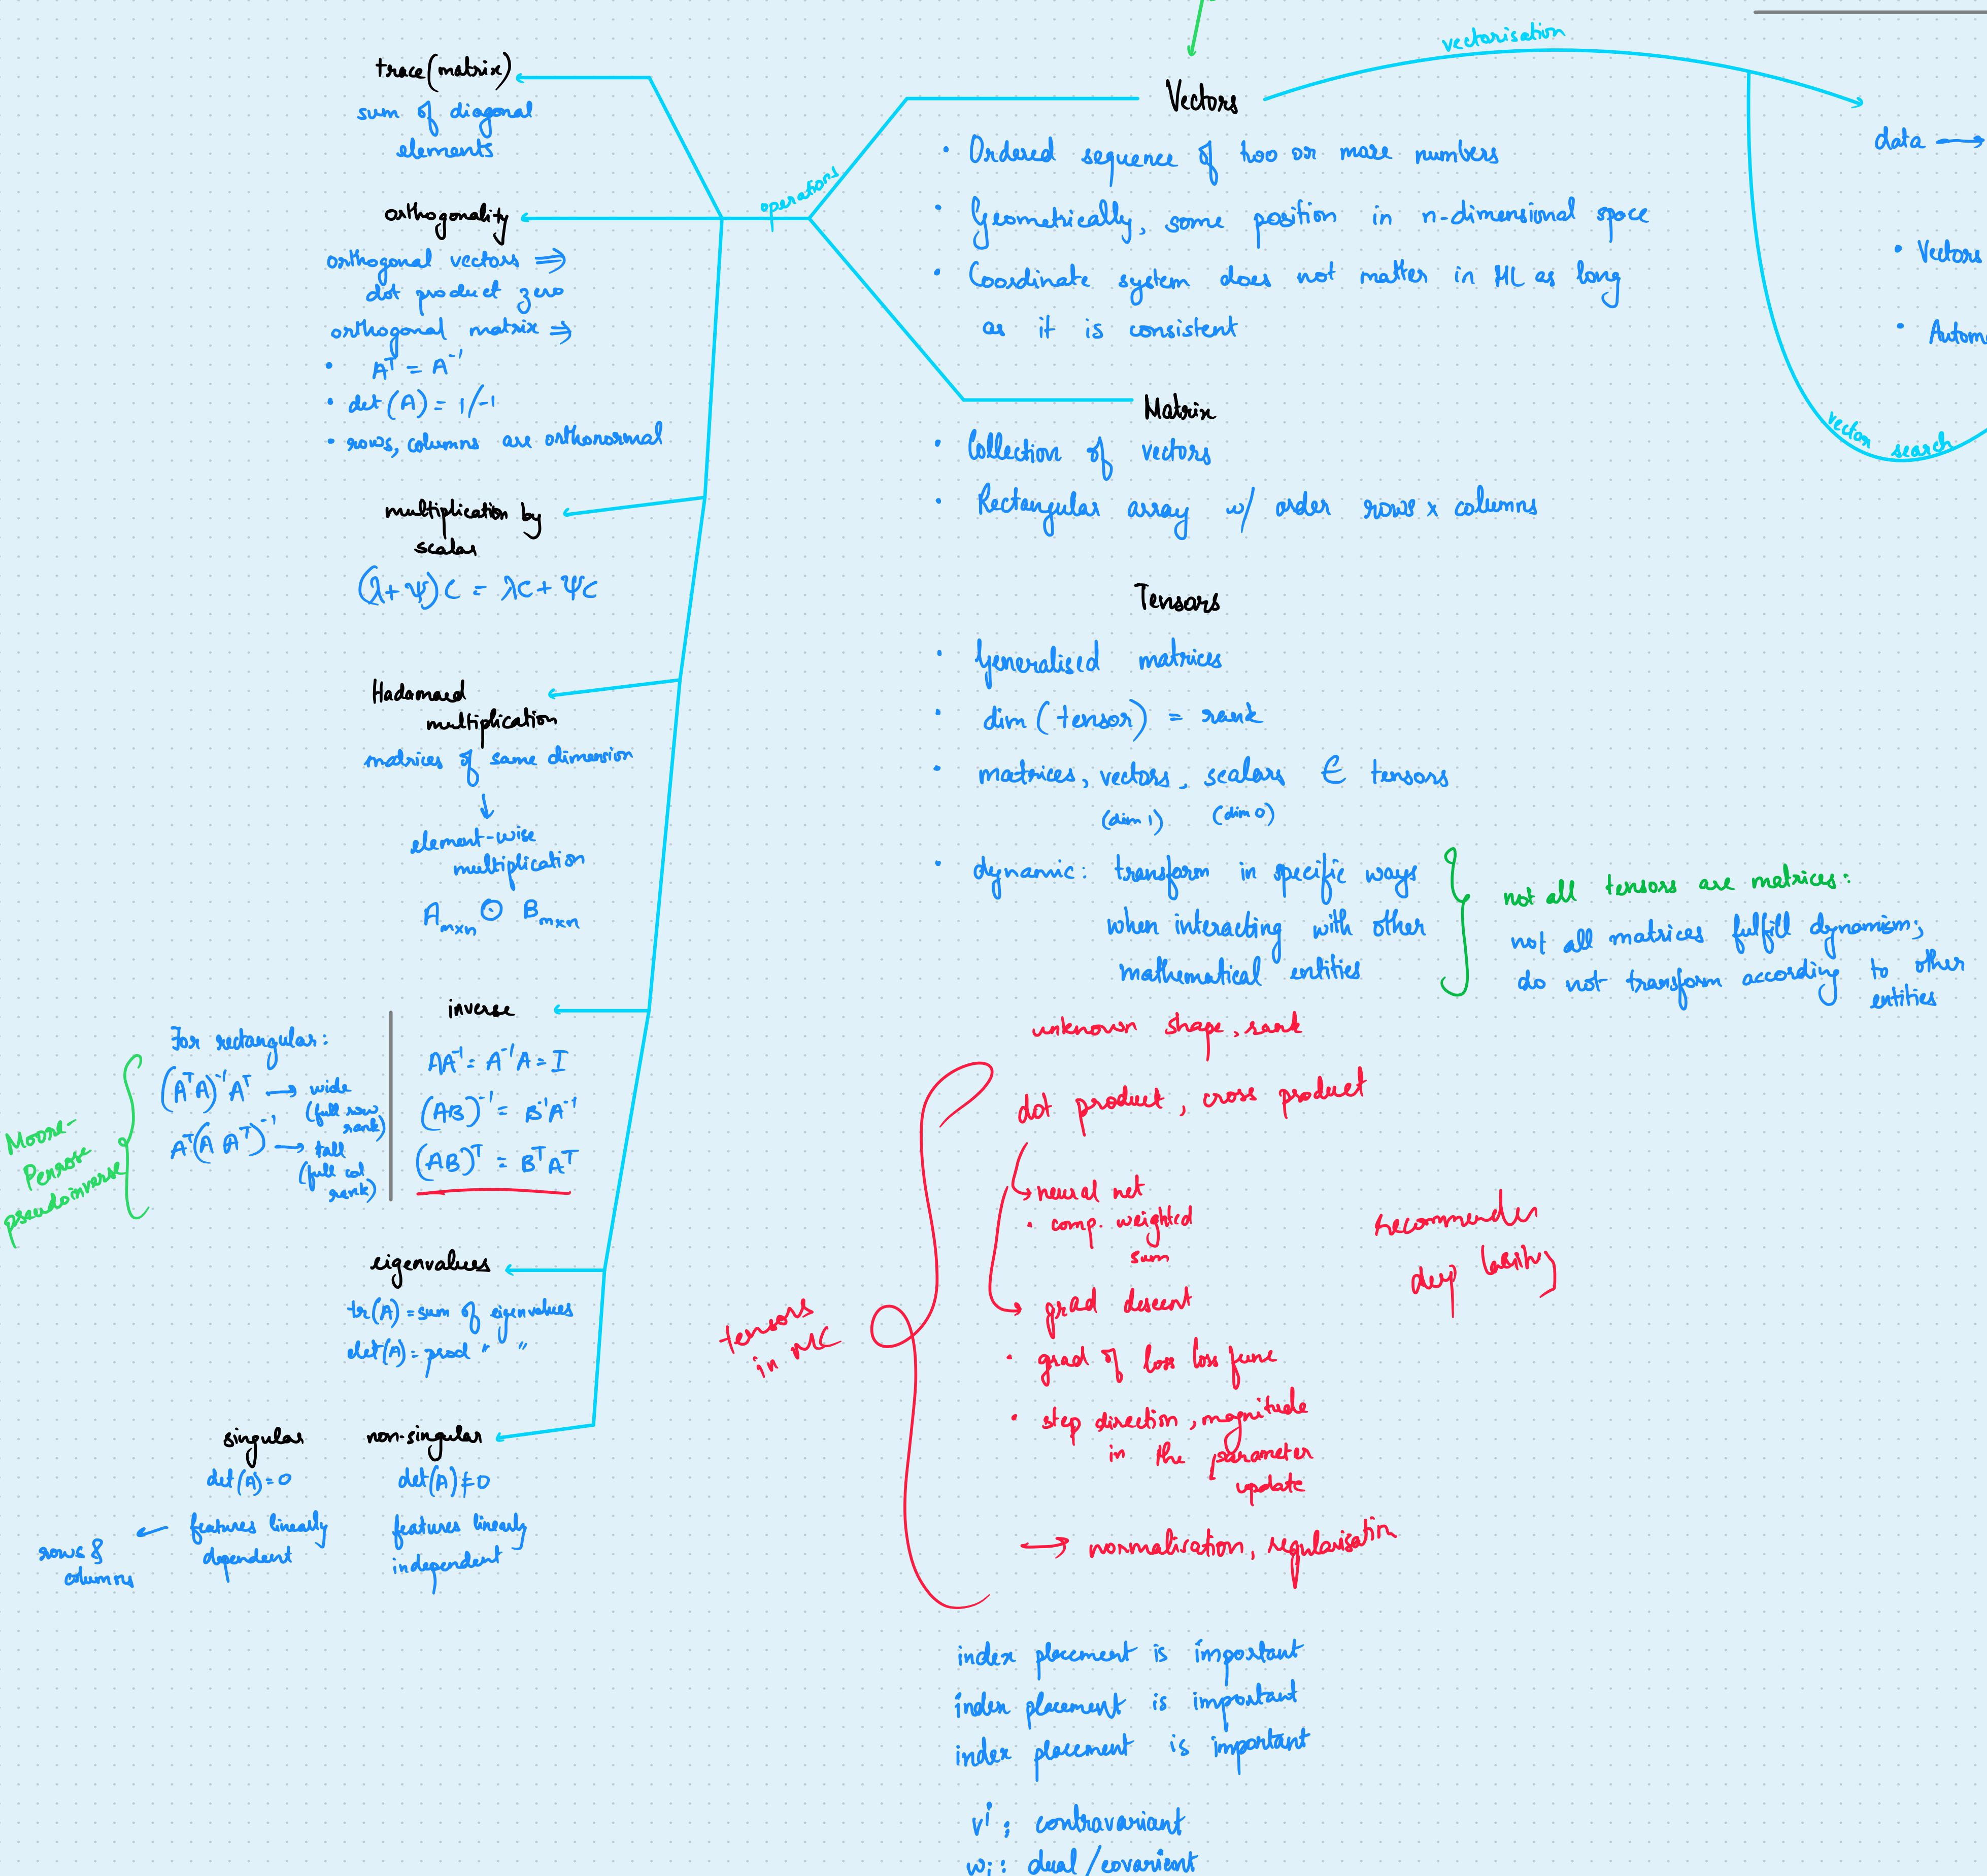 trace(matrix)
sum of diagonal
elements
orthogonality
orthogonal vectors ⇒
dot product zero
orthogonal matrix ⇒
• Aᵀ = A⁻¹
• det(A) = 1/-1
• rows, columns are orthonormal
multiplication by
scalar
(λ+ψ)C = λC + ψC
Hadamard
multiplication
matrices of same dimension
↓
element-wise
multiplication
A_mxn ⊙ B_mxn
inverse
AA⁻¹ = A⁻¹A = I
(AB)⁻¹ = B⁻¹A⁻¹
(AB)ᵀ = BᵀAᵀ
For rectangular:
(AᵀA)⁻¹Aᵀ → wide
(full row
rank)
Aᵀ(A Aᵀ)⁻¹ → tall
(full col
rank)
Moore-
Penrose
pseudoinverse
eigenvalues
tr(A) = sum of eigenvalues
det(A) = prod " "
singular
det(A) = 0
features linearly
dependent
rows &
columns
non-singular
det(A) ≠ 0
features linearly
independent
operations
Vectors
• Ordered sequence of two or more numbers
• Geometrically, some position in n-dimensional space
• Coordinate system does not matter in ML as long
as it is consistent
vectorisation
data →
• Vectors
• Autom
vector search
Matrix
• Collection of vectors
• Rectangular array w/ order rows x columns
Tensors
• Generalised matrices
• dim (tensor) = rank
• matrices, vectors, scalars ∈ tensors
(dim 1) (dim 0)
• dynamic: transform in specific ways
when interacting with other
mathematical entities
not all tensors are matrices:
not all matrices fulfill dynamism;
do not transform according to other
entities
unknown shape, rank
tensors
in ML
dot product, cross product
neural net
• comp. weighted
sum
grad descent
• grad of loss loss func
• step direction, magnitude
in the parameter
update
→ normalisation, regularisation
recommender
index placement is important
index placement is important
index placement is important
vⁱ: contravariant
wᵢ: dual/covariant